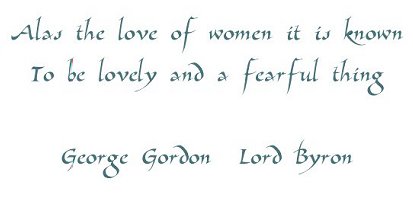 Alas the love of women it is known
To be lovely and a fearful thing
George Gordon Lord Byron